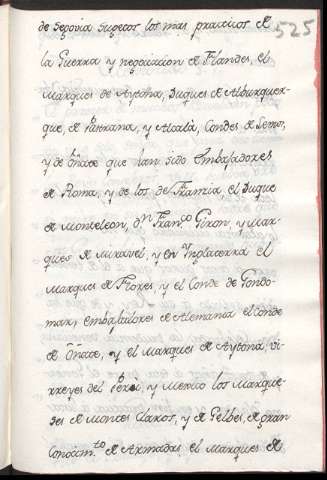 525
de segovia sugetos los mas practicos de
la Guerra y negociacion de Flandes, el
Marques de Aytona, Duques de Alburquer-
que, de Pastrana, y Alcala, Condes de Lemos,
y de oñate que han sido embajadores
de Roma, y de los de Francia, el Duque
de Monteleon, Dn Franco Giron, y Mar-
ques de Miravel, y en Inglaterra el
Marques de Flores, y el Conde de Gondo-
mar, embajadores de Alemania el conde
de Oñate, y el Marques de Aytona, vi-
rreyes del Perú, y Mexico los Marque-
ses de Montes Claros, y de Gelbes, de gran
conocimto de Armadas el Marques de